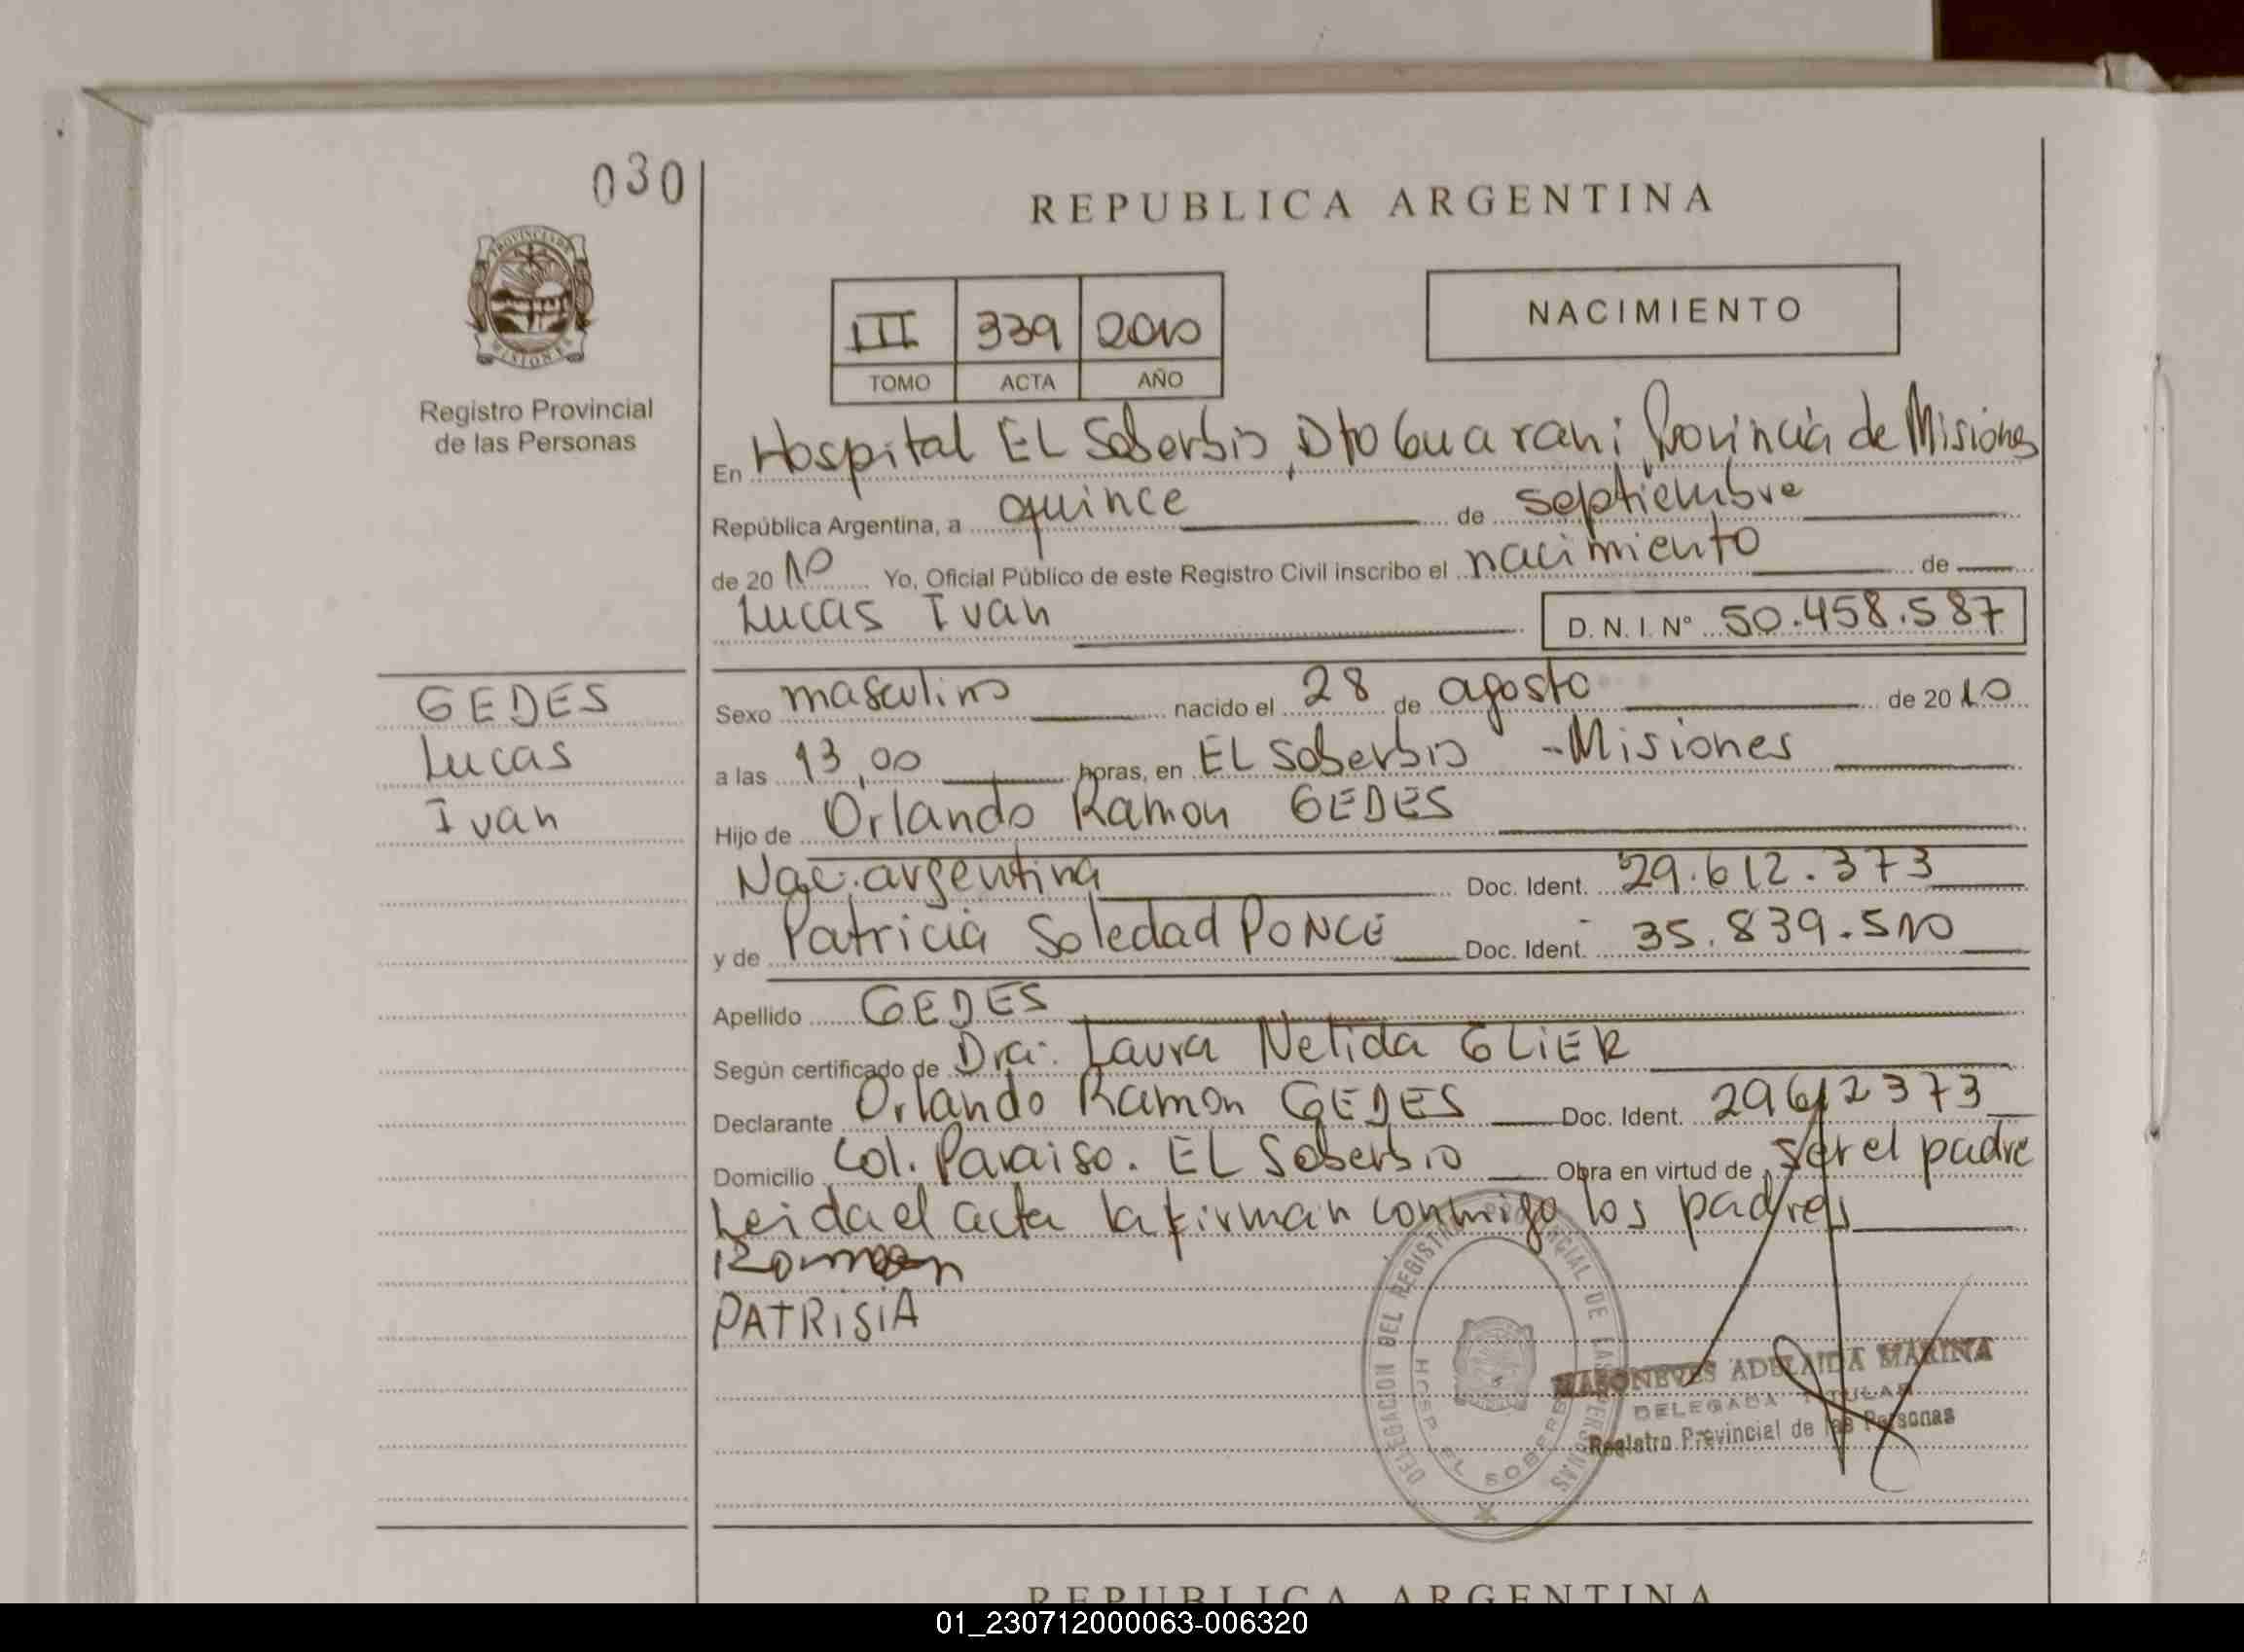 030
REPUBLICA ARGENTINA
PROVINCIA DE
MISIONES
Registro Provincial
de las Personas
III 339 2010
TOMO ACTA AÑO
NACIMIENTO
En Hospital EL Soberbio, Dto Guarani, Provincia de Misiones
República Argentina, a quince de septiembre
de 2010 Yo, Oficial Público de este Registro Civil inscribo el nacimiento de
Lucas Ivan D. N. I. N° 50.458.587
GEDES
Lucas
Ivan
Sexo masculino nacido el 28 de agosto de 2010
a las 13,00 horas, en EL Soberbio - Misiones
Hijo de Orlando Ramon GEDES
Nac. argentina Doc. Ident. 29.612.373
y de Patricia Soledad PONCE Doc. Ident. 35.839.510
Apellido GEDES
Según certificado de Dra. Laura Nelida GLIER
Declarante Orlando Ramon GEDES Doc. Ident. 29612373
Domicilio Col. Paraiso. EL Soberbio Obra en virtud de ser el padre
Leida el acta la firman conmigo los padres
Ramon
PATRISIA
DELEGACION DEL REGISTRO PROVINCIAL DE LAS PERSONAS
HOSP EL SOBERBIO
ADELAIDA MARINA
DELEGADA TITULAR
Registro Provincial de las Personas
REPUBLICA ARGENTINA
01_230712000063-006320